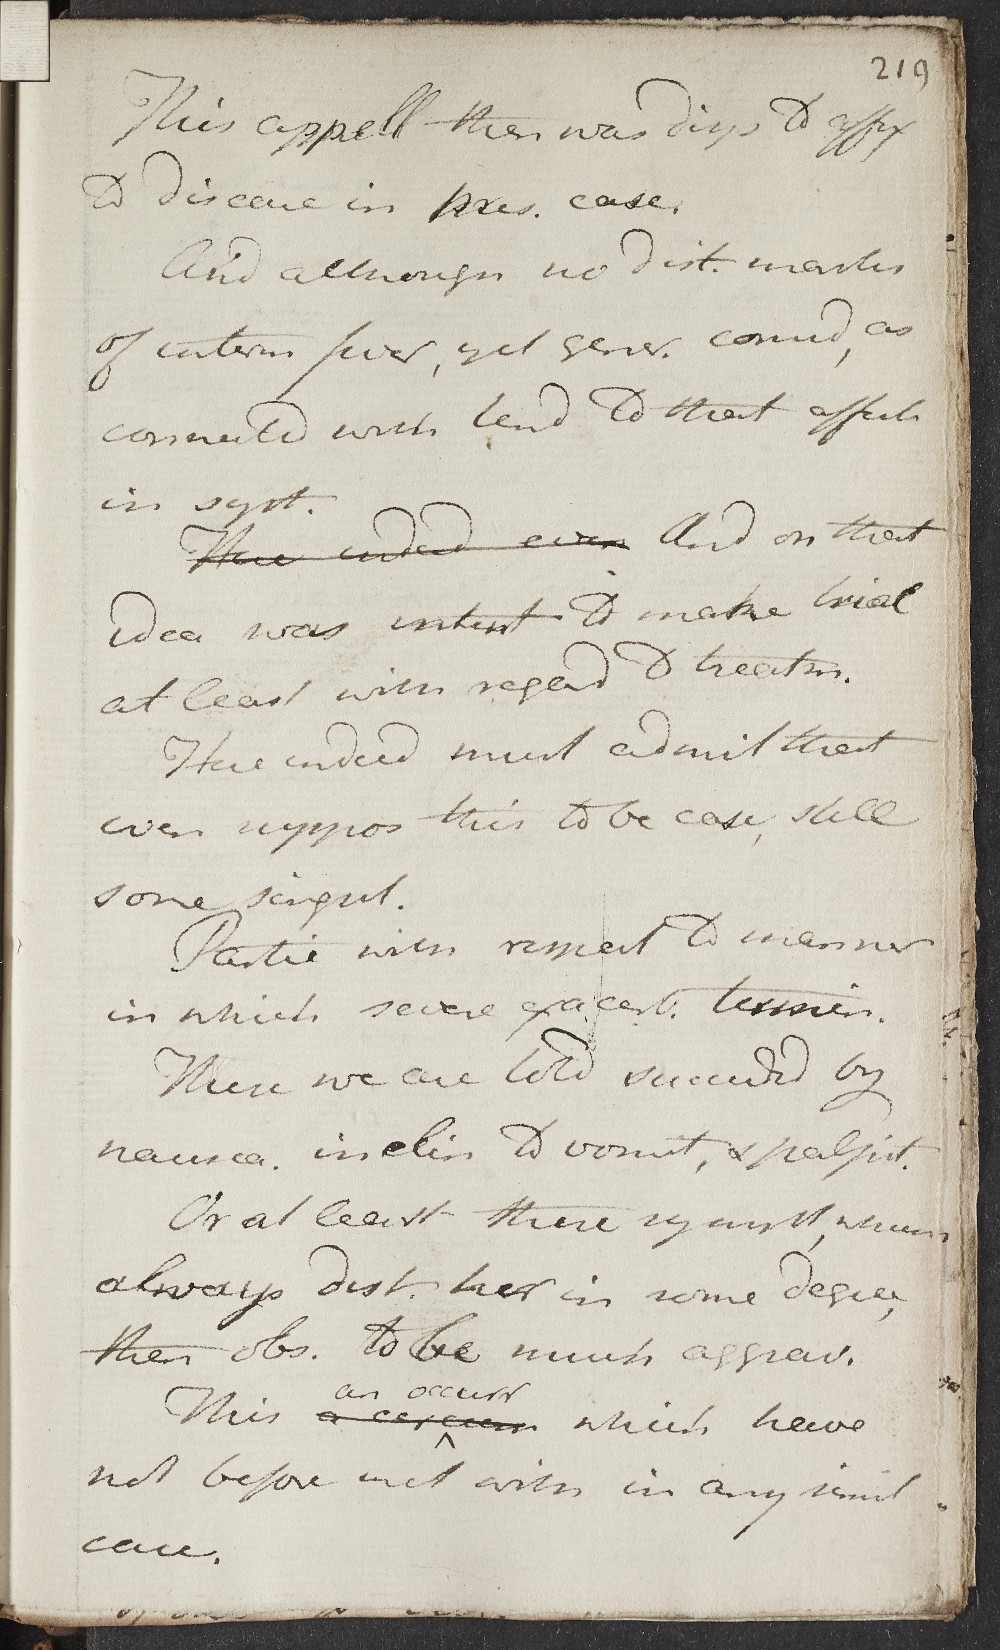 219
This appell then was disps to affix
to disease in pres. case.
And although no dist. marks
of interm fever, yet gener. connd, as
connected with tend to that affect
in syst.
Here indeed even And on that
idea was intent to make trial
at least with regard to treatm.
Here indeed must admit that
even suppos this to be case, still
some singul.
Partic with respect to manner
in which severe exacerb. termin.
These we are told succeeded by
nausea. inclin to vomit, & palpit.
Or at least these sympt, which
always dist. her in some degree,
then obs. to be much aggrav.
an occurr
This a which have
not before met with in any simil
case.